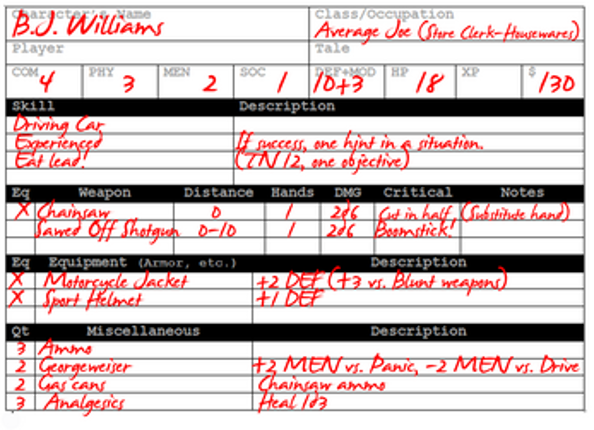 Character's Name Class/Occupation
B.J. Williams Average Joe (Store Clerk-Housewares)
Player Tale
COM PHY MEN SOC DEF+MOD HP XP $
4 3 2 1 10+3 18 130
Skill Description
Driving Car
Experienced If success, one hint in a situation.
Eat lead! (TN 12, one objective)
Eq Weapon Distance Hands DMG Critical Notes
X Chainsaw 0 1 2d6 Cut in half (Substitute hand)
Sawed Off Shotgun 0-10 1 2d6 Boomstick!
Eq Equipment (Armor, etc.) Description
X Motorcycle Jacket +2 DEF (+3 vs. Blunt weapons)
X Sport Helmet +1 DEF
Qt Miscellaneous Description
3 Ammo
2 Georgeweiser +2 MEN vs. Panic, -2 MEN vs. Drive
2 Gas cans Chainsaw ammo
3 Analgesics Heal 1d3